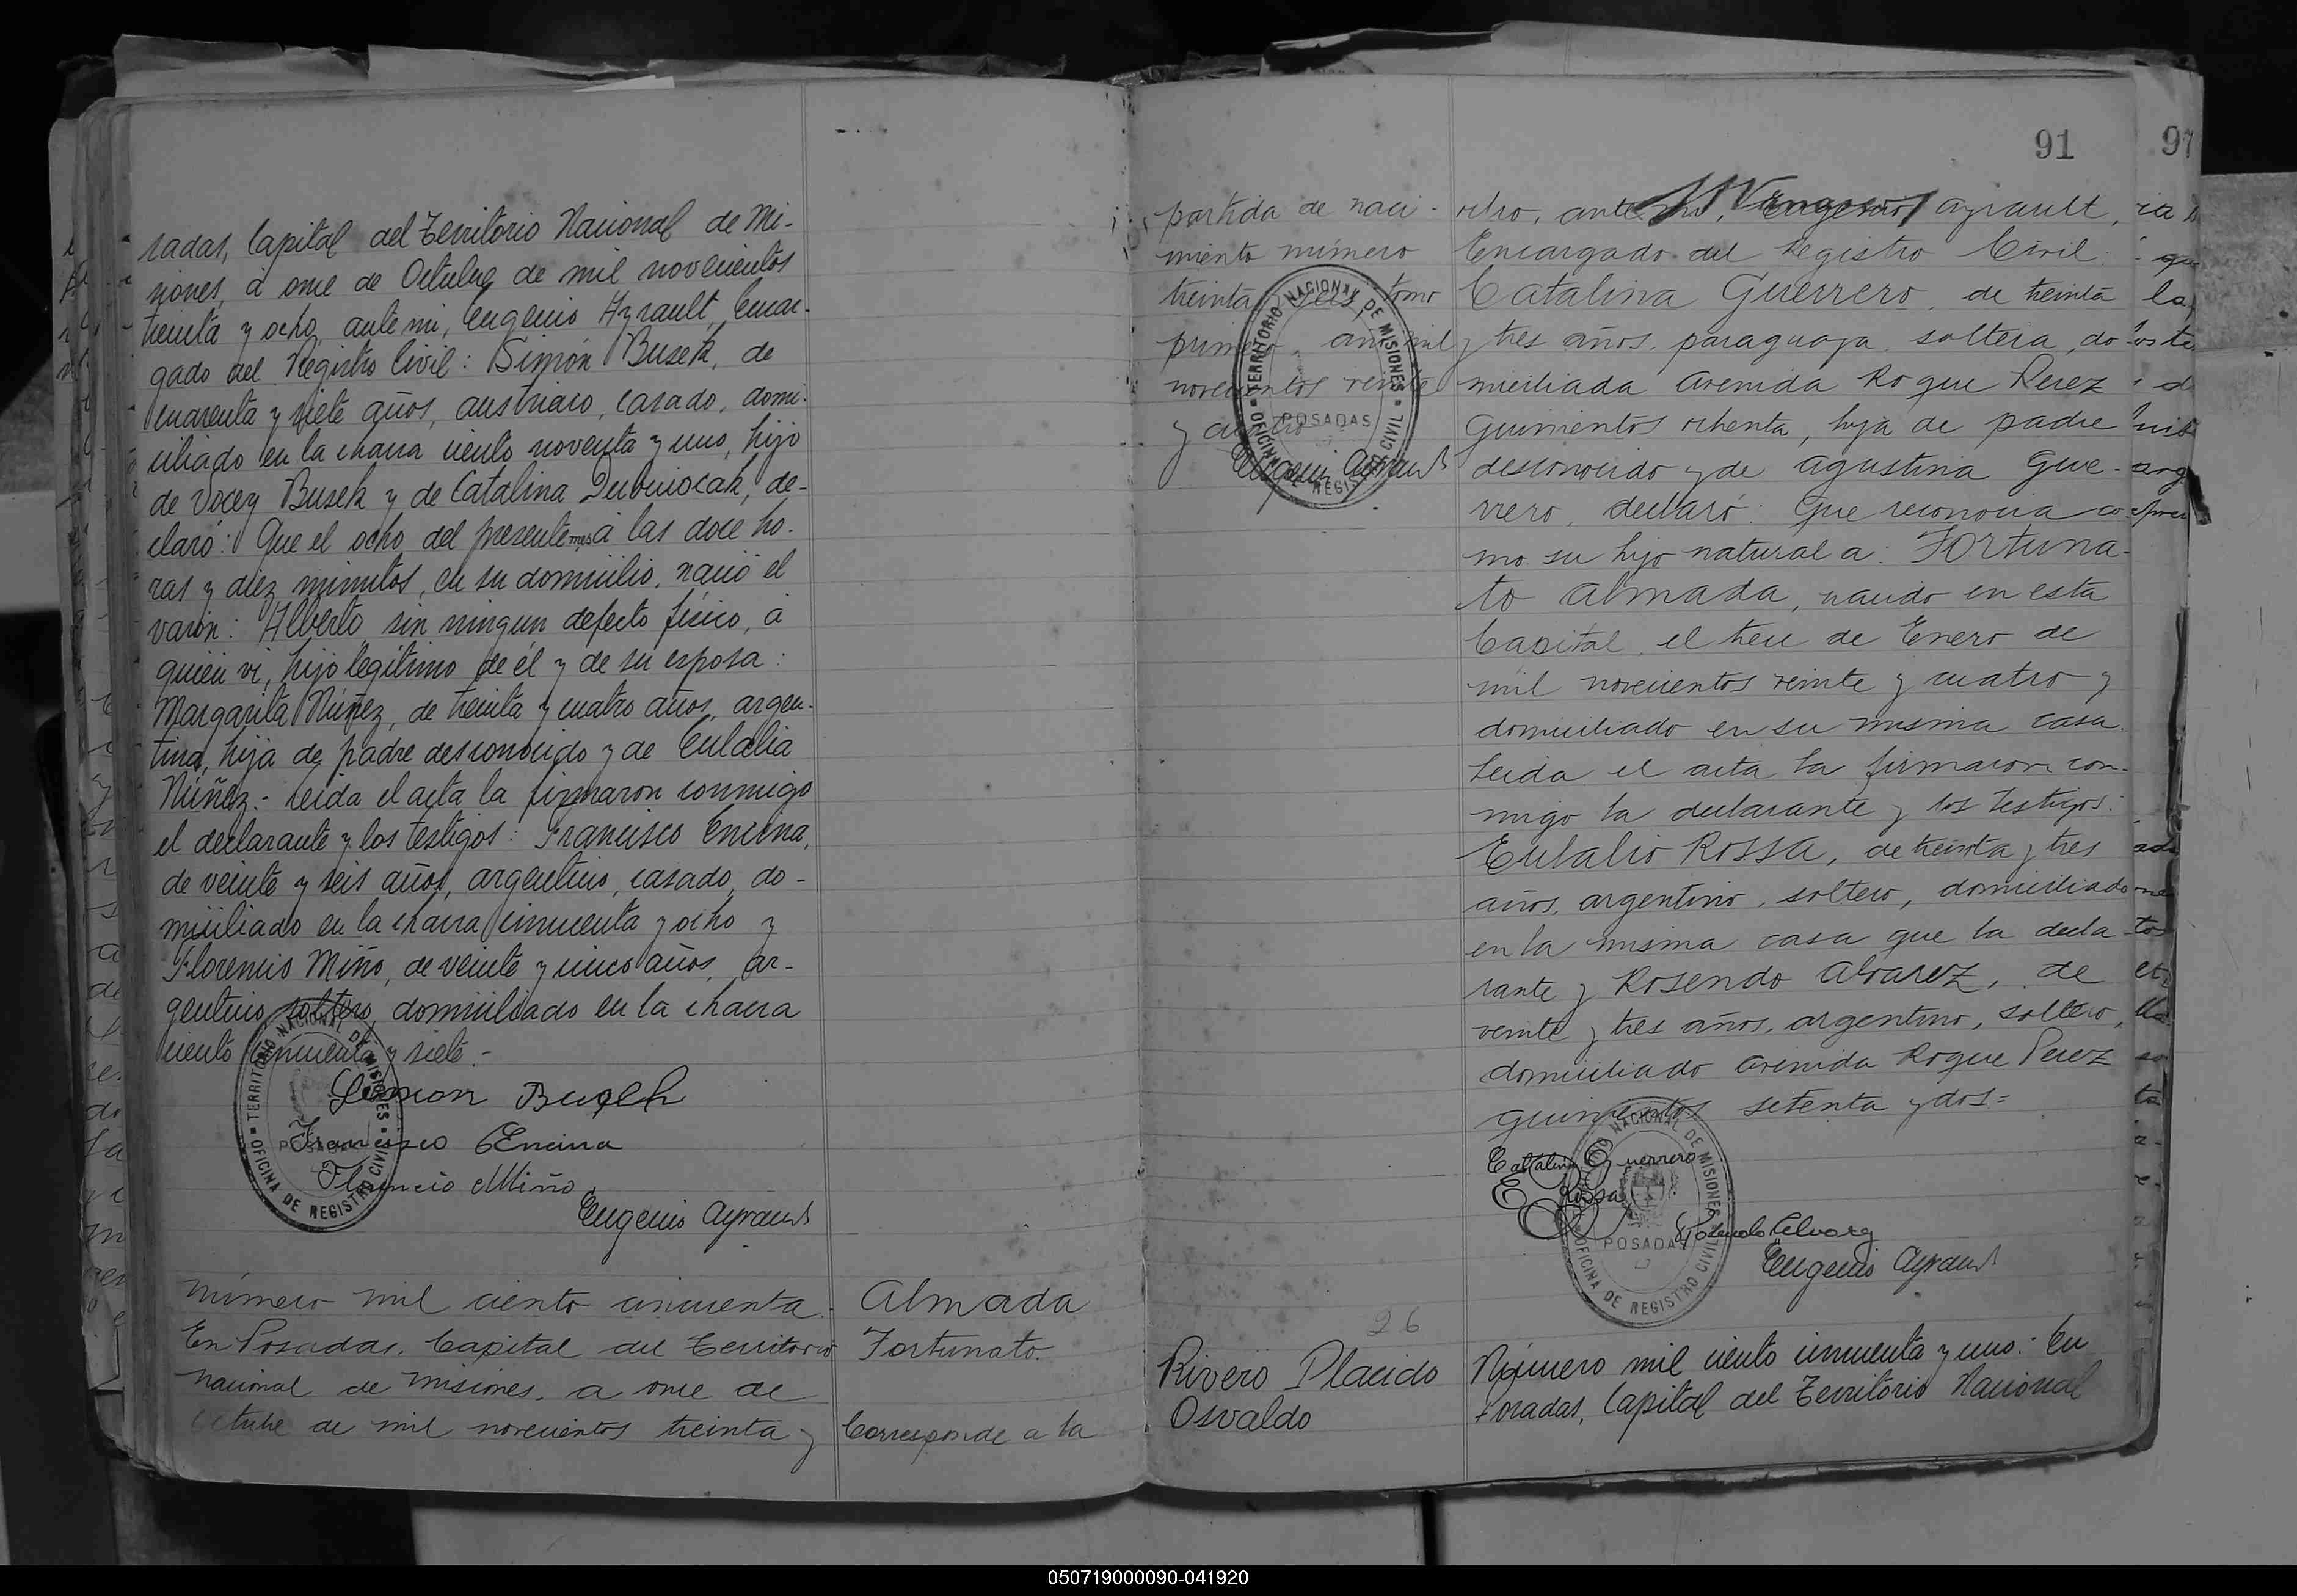 sadas, Capital del Territorio Nacional de Mi-
siones, á once de Octubre de mil novecientos
treinta y ocho, ante mi, Eugenio Ayrault, Encar-
gado del Registro Civil: Simón Busek, de
cuarenta y siete años, austriaco, casado, domi-
ciliado en la chacra ciento noventa y uno, hijo
de Vocey Busek y de Catalina, de-
claró: Que el ocho del presente mes á las doce ho-
ras y diez minutos, en su domicilio, nació el
varón: Alberto, sin ningun defecto fisico, á
quien vi, hijo legitimo de él y de su esposa:
Margarita Núñez, de treinta y cuatro años, argen-
tina, hija de padre desconocido y de Eulalia
Núñez.- Leida el acta la firmaron conmigo
el declarante y los testigos: Francisco Encina,
de veinte y seis años, argentino, casado, do-
miciliado en la chacra cincuenta y ocho y
Florencio Miño, de veinte y cinco años, ar-
gentino, soltero, domiciliado en la chacra
ciento cincuenta y siete.-
Simon Busek
Francisco Encina
Florencio Miño
Eugenio Ayrault
TERRITORIO NACIONAL DE MISIONES
POSADAS
OFICINA DE REGISTRO CIVIL
Número mil ciento cincuenta:
En Posadas, Capital del Territorio
Nacional de Misiones, a once de
Octubre de mil novecientos treinta y
Almada
Fortunato.
Corresponde a la
91
97
partida de naci-
miento número
treinta y seis, tomo
primero, año mil
novecientos veinte
y cuatro
Eugenio Ayrault
TERRITORIO NACIONAL DE MISIONES
POSADAS
OFICINA DE REGISTRO CIVIL
ocho, ante mi, Eugenio Ayrault,
Encargado del Registro Civil:
Catalina Guerrero, de treinta
y tres años, paraguaya, soltera, do-
miciliada Avenida Roque Perez
quinientos ochenta, hija de padre
desconocido y de Agustina Gue-
rrero, declaró: Que reconocia co-
mo su hijo natural a: Fortuna-
to Almada, nacido en esta
Capital, el trece de Enero de
mil novecientos veinte y cuatro y
domiciliado en su misma casa.
Leida el acta la firmaron con-
migo la declarante y los testigos:
Eulalio Rossa, de treinta y tres
años, argentino, soltero, domiciliado
en la misma casa que la decla-
rante y Rosendo Alvarez, de
veinte y tres años, argentino, soltero,
domiciliado Avenida Roque Perez
quinientos setenta y dos=
Catalina Guerrero
E Rossa
Rosendo Alvarez
Eugenio Ayrault
TERRITORIO NACIONAL DE MISIONES
POSADAS
OFICINA DE REGISTRO CIVIL
26
Rivero Placido
Osvaldo
Número mil ciento cincuenta y uno: En
Posadas, Capital del Territorio Nacional
050719000090-041920